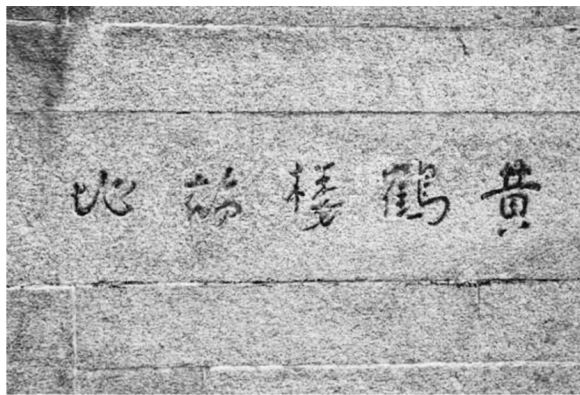 黄鹤楼故址